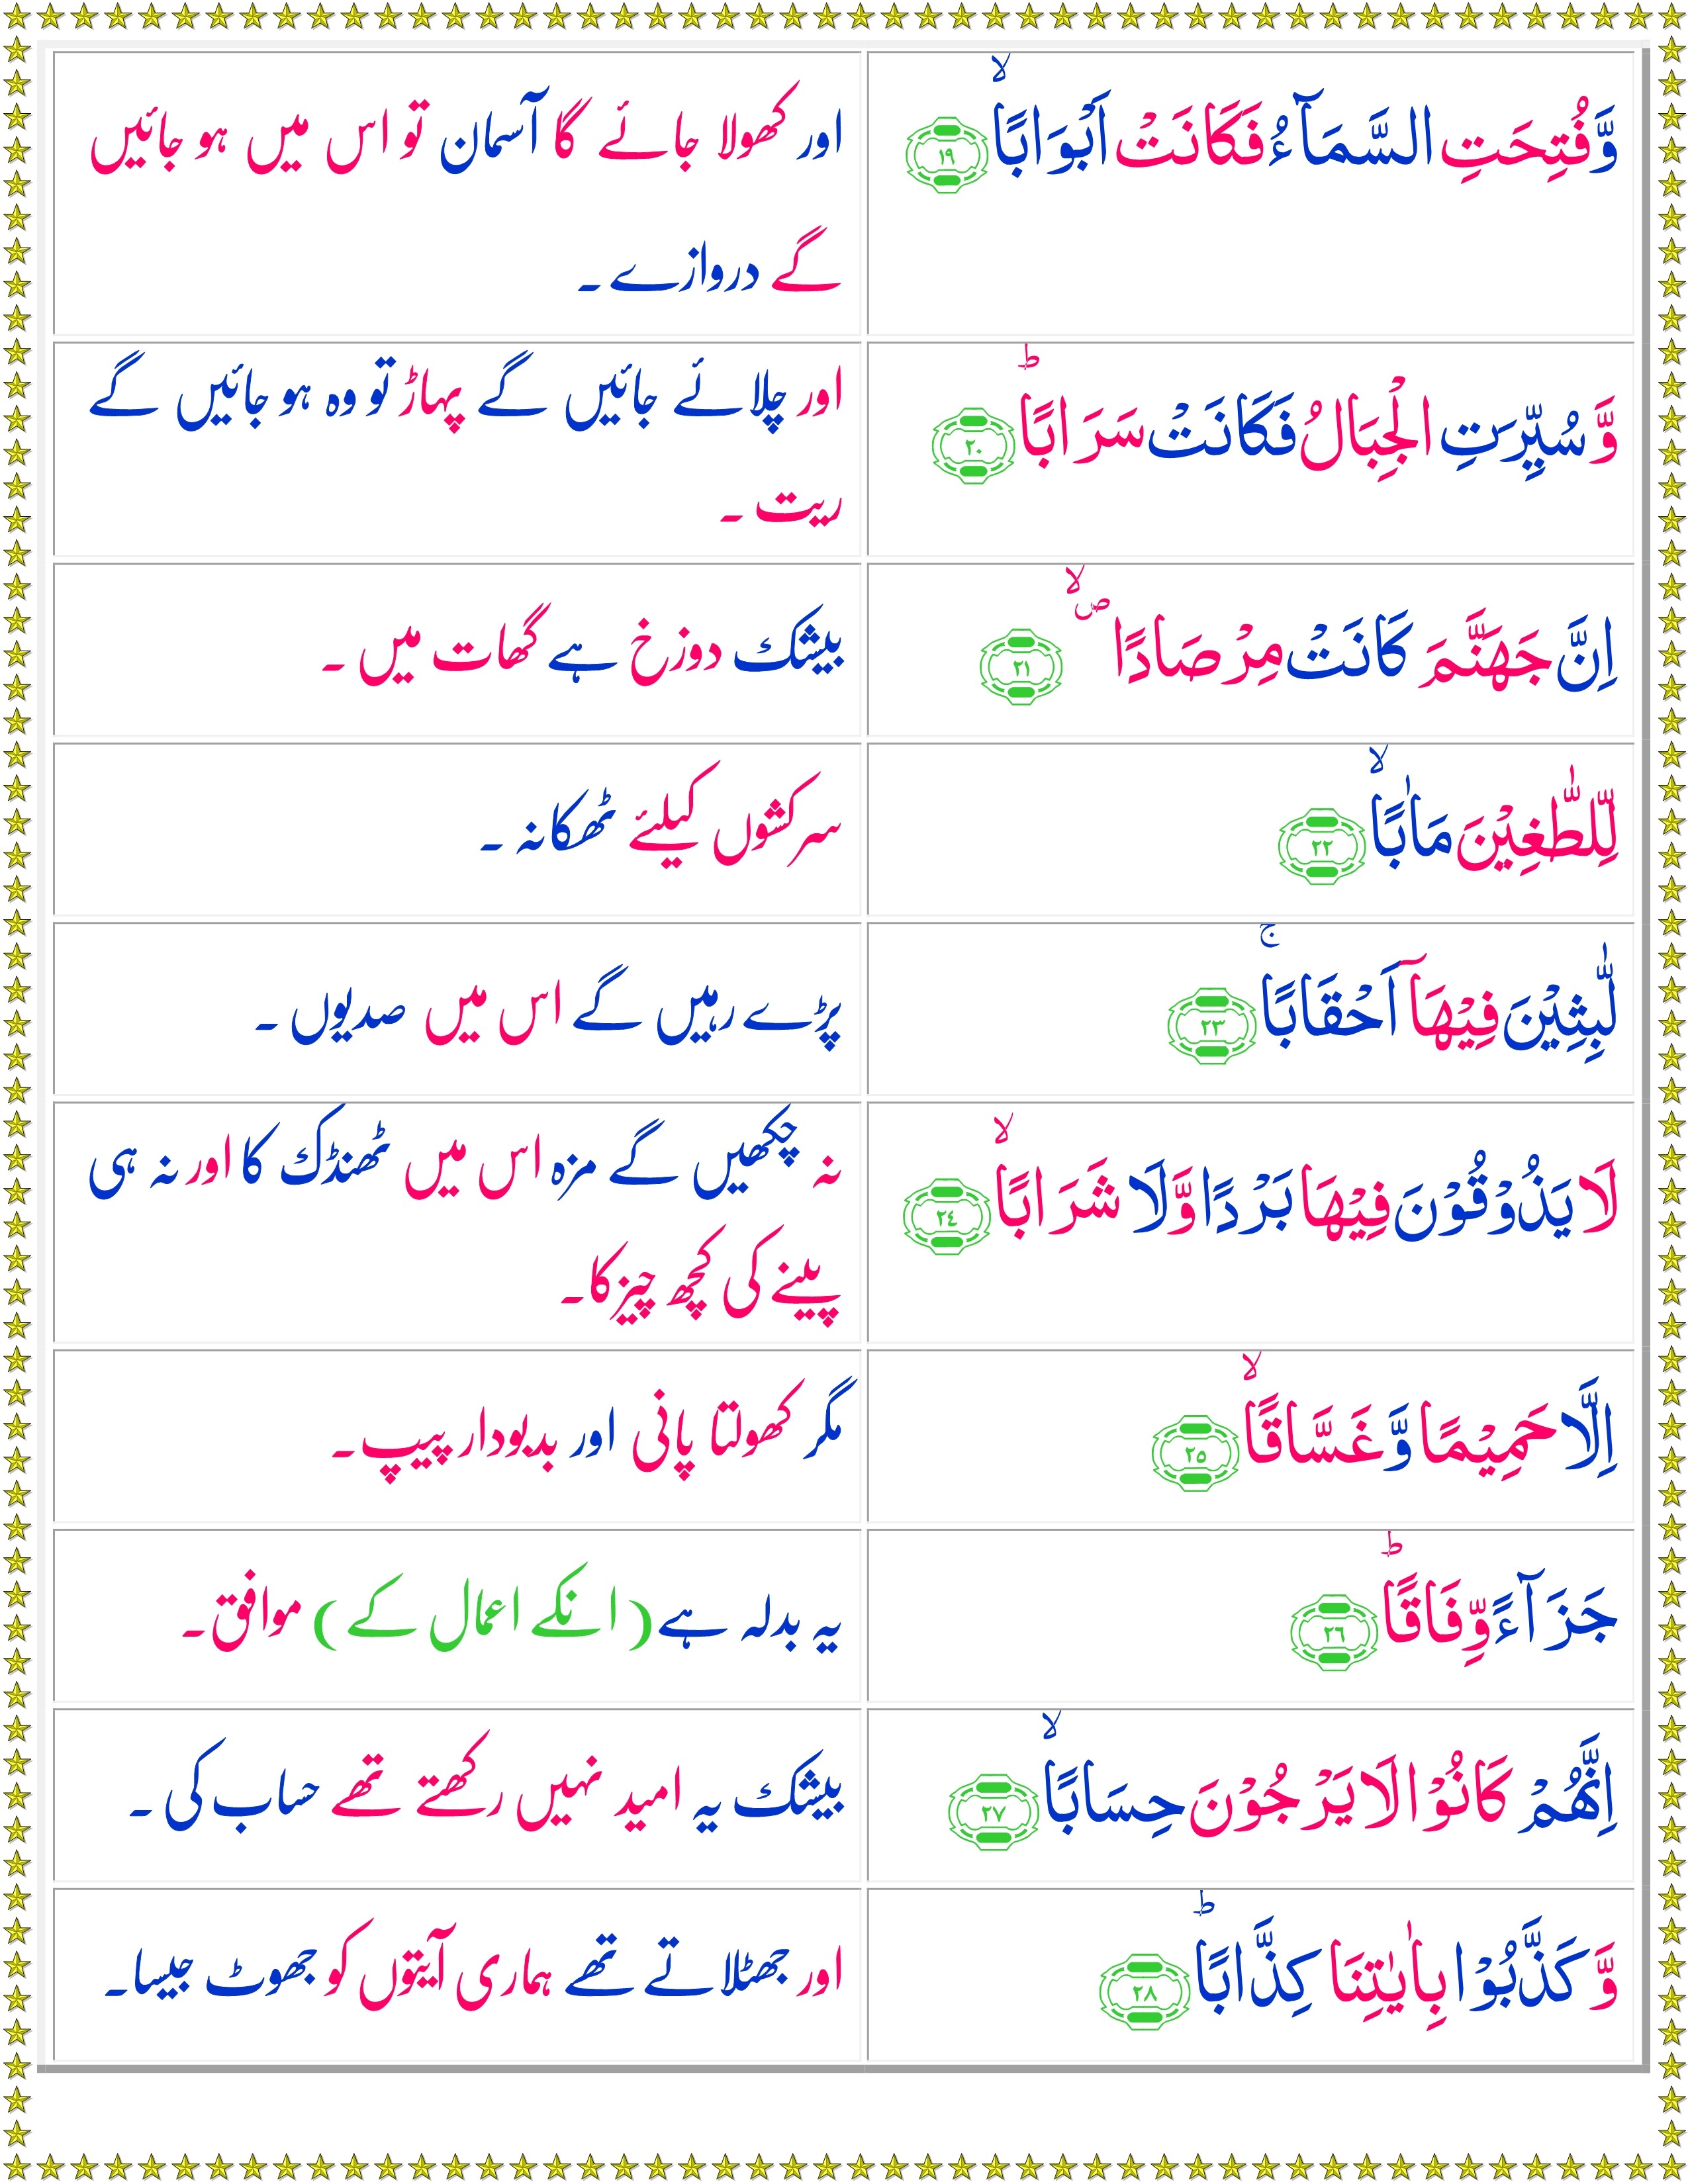 وَّفُتِحَتِ السَّمَآءُ فَكَانَتْ اَبْوَابًا ۙ ﴿١٩﴾
اور کھولا جائے گا آسمان تو اس میں ہو جائیں
گے دروازے ۔
وَّسُيِّرَتِ الْجِبَالُ فَكَانَتْ سَرَابًا ؕ ﴿٢٠﴾
اور چلائے جائیں گے پہاڑ تو وہ ہو جائیں گے
ریت ۔
اِنَّ جَهَنَّمَ كَانَتْ مِرْصَادًا ۙ ص ﴿٢١﴾
بیشک دوزخ ہے گھات میں ۔
لِّلطّٰغِيْنَ مَاٰبًا ۙ ﴿٢٢﴾
سرکشوں کیلئے ٹھکانہ ۔
لّٰبِثِيْنَ فِيْهَآ اَحْقَابًا ۚ ﴿٢٣﴾
پڑے رہیں گے اس میں صدیوں ۔
لَا يَذُوْقُوْنَ فِيْهَا بَرْدًا وَّلَا شَرَابًا ۙ ﴿٢٤﴾
نہ چکھیں گے مزہ اس میں ٹھنڈک کا اور نہ ہی
پینے کی کچھ چیز کا۔
اِلَّا حَمِيْمًا وَّغَسَّاقًا ۙ ﴿٢٥﴾
مگر کھولتا پانی اور بدبودار پیپ ۔
جَزَآءً وِّفَاقًا ؕ ﴿٢٦﴾
یہ بدلہ ہے ( انکے اعمال کے ) موافق ۔
اِنَّهُمْ كَانُوْا لَا يَرْجُوْنَ حِسَابًا ۙ ﴿٢٧﴾
بیشک یہ امید نہیں رکھتے تھے حساب کی ۔
وَّكَذَّبُوْا بِاٰيٰتِنَا كِذَّابًا ؕ ﴿٢٨﴾
اور جھٹلاتے تھے ہماری آیتوں کو جھوٹ جیسا ۔